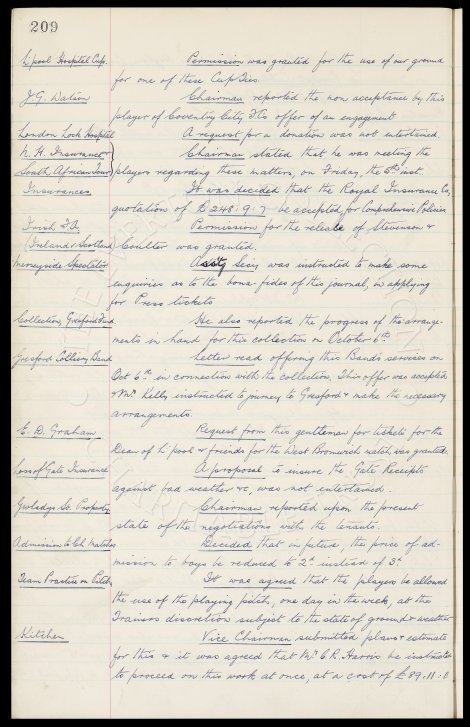 209
L'pool Hospital Cup. Permission was granted for the use of our ground
for one of these Cup Ties.
J. G. Watson Chairman reported the non acceptance by this
player of Coventry City F.Cs offer of an engagement
London Lock Hospital A request for a donation was not entertained.
N. H. Insurance & Chairman stated that he was meeting the
South African Tour players regarding these matters, on Friday, the 5th inst.
Insurances It was decided that the Royal Insurance Co,
quotation of £248:9:7 be accepted for Comprehensive Policies
Irish F.A. Permission for the release of Stevenson &
(Ireland v Scotland) Coulter was granted.
Merseyside Spectator Asst Secy was instructed to make some
enquiries as to the bona-fides of this journal, in applying
for Press tickets
Collection, Gresford Fund He also reported the progress of the arrange-
ments in hand for this collection on October 6th.
Gresford Colliery Band Letter read offering this Band's services on
Oct 6th in connection with the collection. This offer was accepted
& Mr Kelly instructed to journey to Gresford & make the necessary
arrangements.
E. D. Graham Request from this gentleman for tickets for the
Dean of L'pool & friends for the West Bromwich match was granted.
Loss of Gate Insurance A proposal to insure the Gate Receipts
against bad weather &c, was not entertained.
Gwladys St. Property Chairman reported upon the present
state of the negotiations with the tenants.
Admission to C.L. Matches Decided that in future, the price of ad-
mission to boys be reduced to 2d instead of 3d.
Team Practice on Pitch It was agreed that the players be allowed
the use of the playing pitch, one day in the week, at the
Trainers discretion subject to the state of ground & weather
Kitchen Vice Chairman submitted plans & estimate
for this & it was agreed that Mr C. R. Harris be instructed
to proceed on this work at once, at a cost of £89.11.0